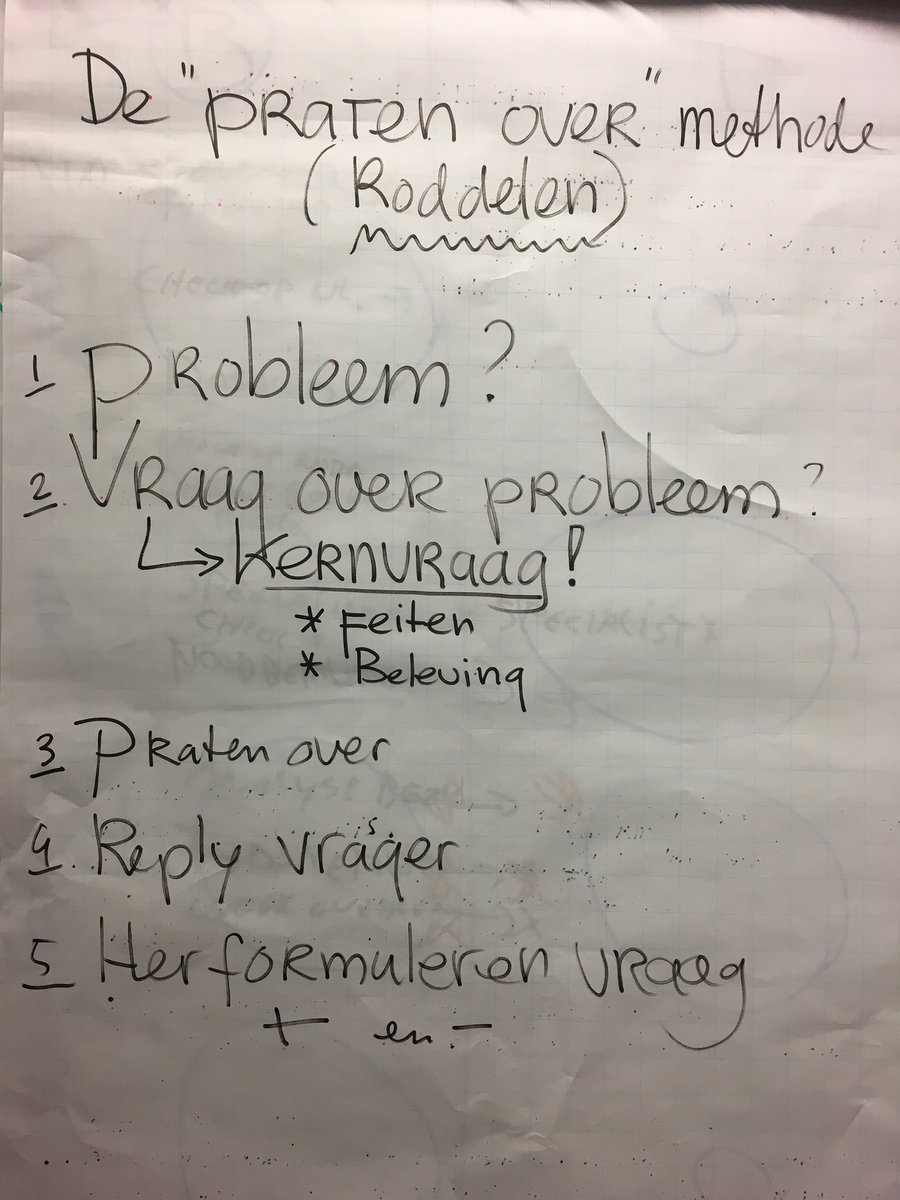 De "PRATEN OVER" methode
(Roddelen)
1 Probleem?
2. Vraag over probleem?
↳ Kernvraag!
* Feiten
* Beleving
3 Praten over
4. Reply vrager
5 Herformuleren vraag
+ en -